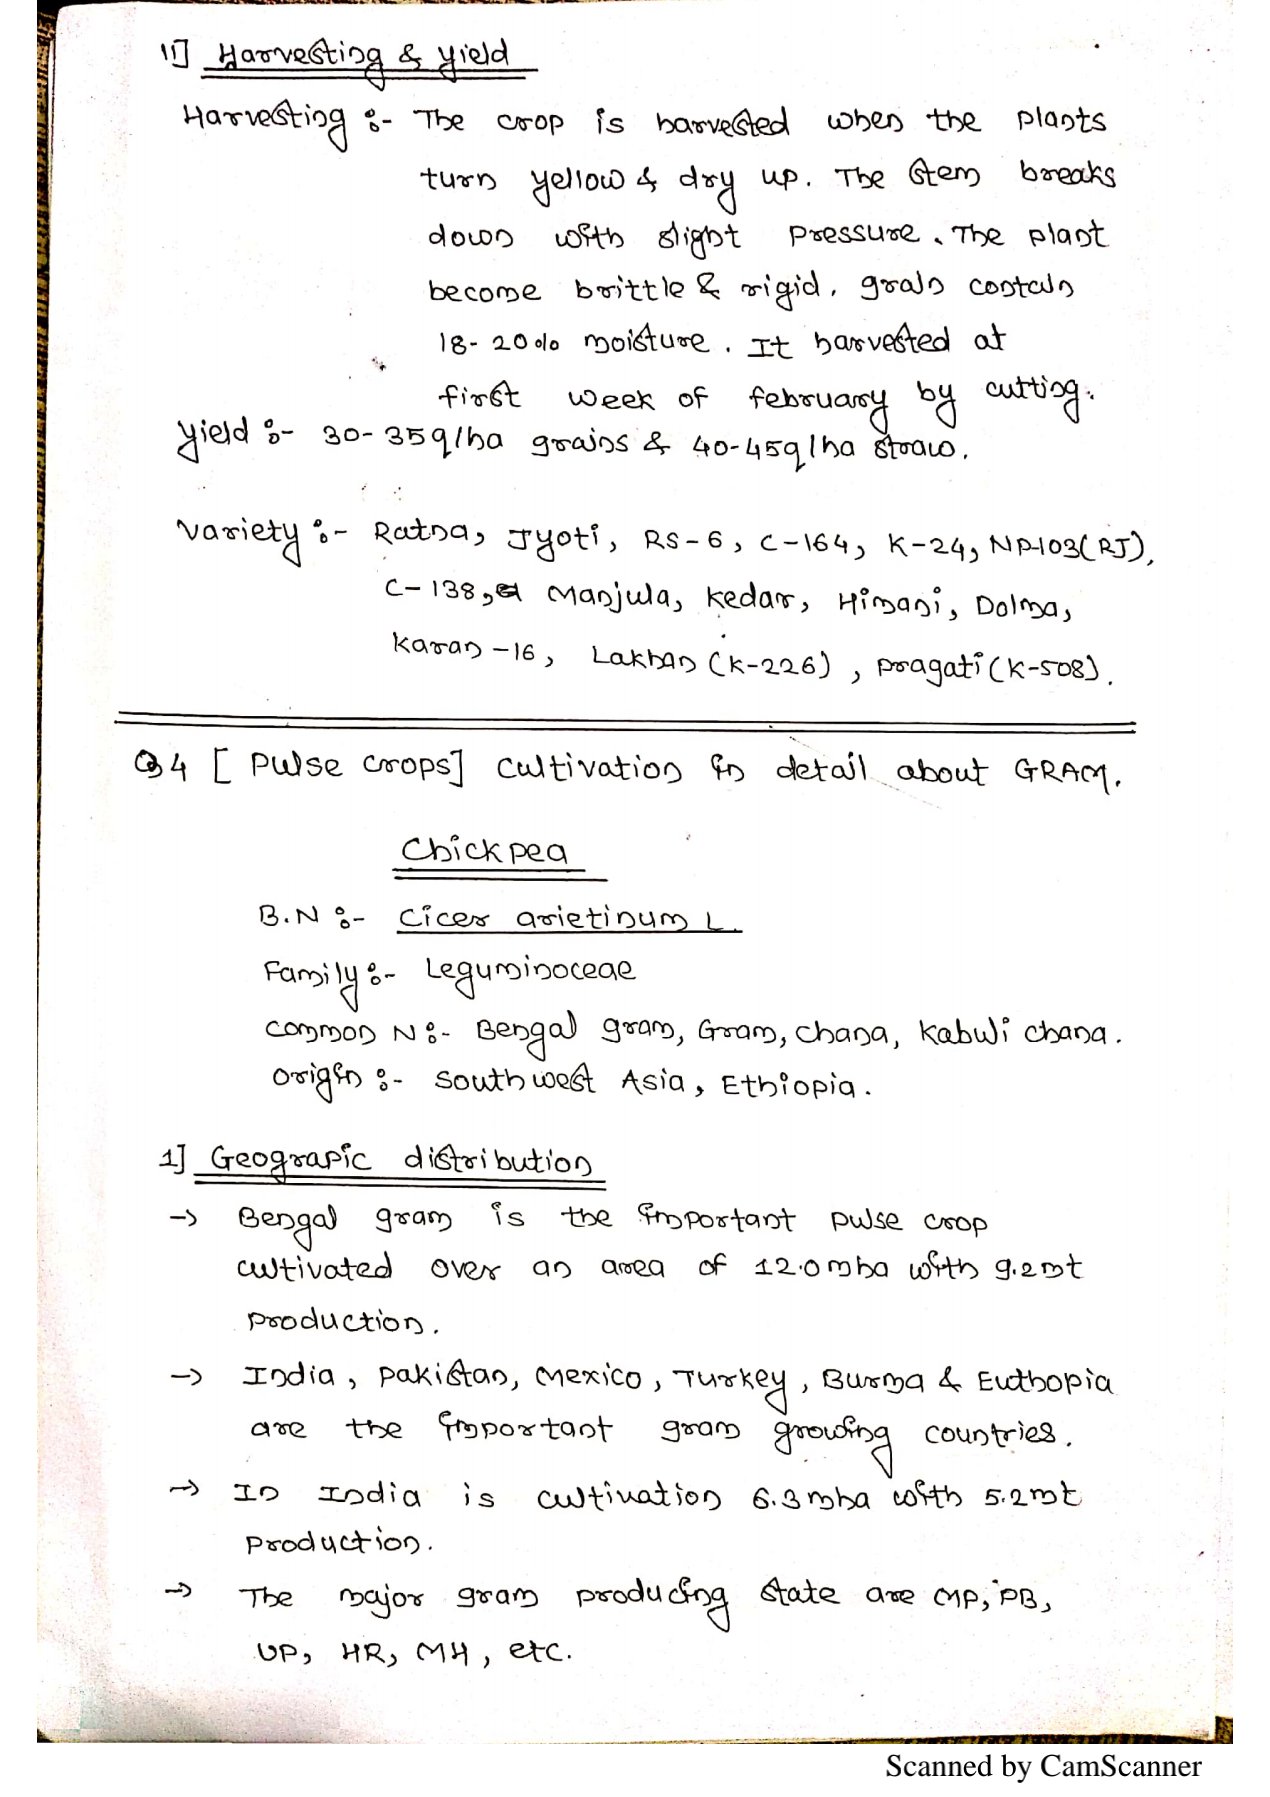 11] Harvesting & yield
Harvesting :- The crop is harvested when the plants
turn yellow & dry up. The stem breaks
down with slight pressure. The plant
become brittle & rigid. grain contain
18-20% moisture. It harvested at
first week of february by cutting.
Yield :- 30-35q/ha grains & 40-45q/ha straw.
Variety :- Ratna, Jyoti, RS-6, C-164, K-24, NP-103(RJ),
C-138, Manjula, Kedar, Himani, Dolma,
Karan-16, Lakhan (K-226), Pragati (K-508).
Q4 [ Pulse crops] cultivation in detail about GRAM.
Chickpea
B.N :- Cicer arietinum L.
Family :- Leguminoceae
Common N :- Bengal gram, Gram, Chana, Kabuli chana.
Origin :- South west Asia, Ethiopia.
1] Geograpic distribution
→ Bengal gram is the important pulse crop
cultivated over an area of 12.0 mha with 9.2 mt
production.
→ India, Pakistan, Mexico, Turkey, Burma & Euthopia
are the important gram growing countries.
→ In India is cultivation 6.3 mha with 5.2 mt
production.
→ The major gram producing state are MP, PB,
UP, HR, MH, etc.
Scanned by CamScanner